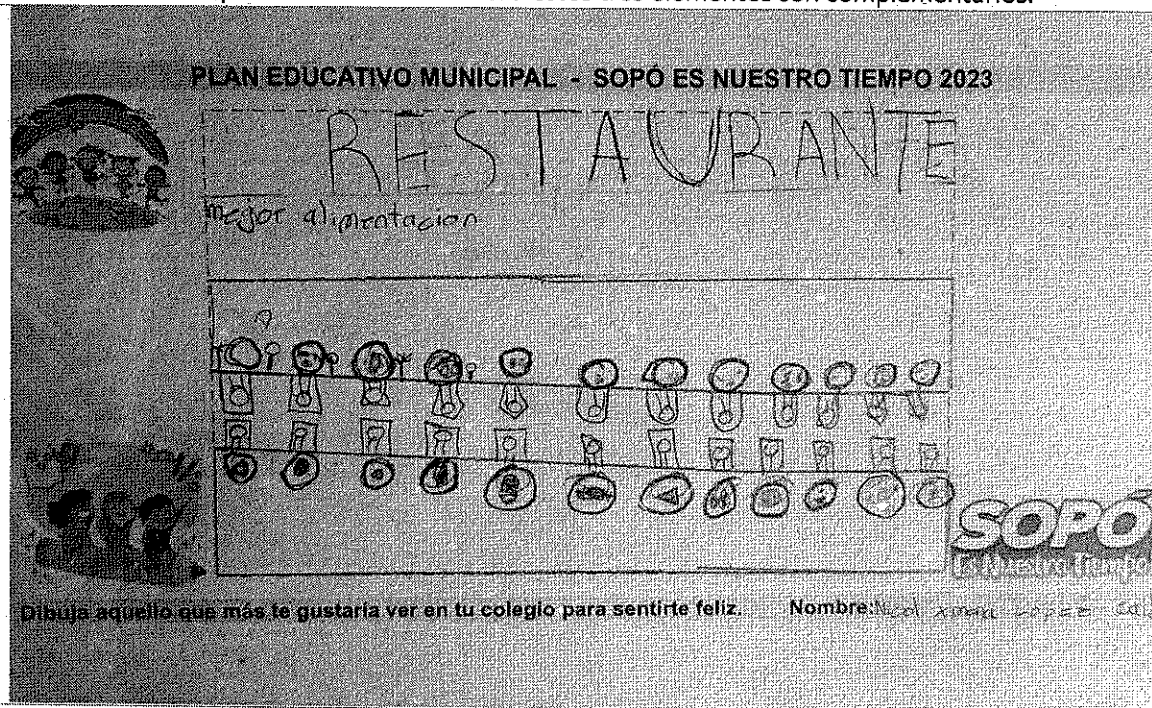 elementos son complementarios.
PLAN EDUCATIVO MUNICIPAL - SOPÓ ES NUESTRO TIEMPO 2023
RESTAURANTE
mejor alimentacion
SOPÓ
Es Nuestro Tiempo
Dibuja aquello que más te gustaría ver en tu colegio para sentirte feliz. Nombre: